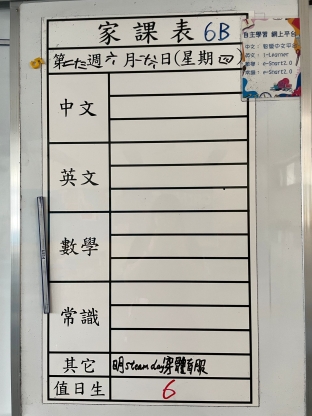 家課表 6B
自主學習 網上平台
中文：智愛中文平台
英文：i-Learner
數學：e-Smart2.0
常識：e-Smart2.0
週六月 日(星期四)
中文
英文
數學
常識
其它 明steam day穿體育服
值日生 6